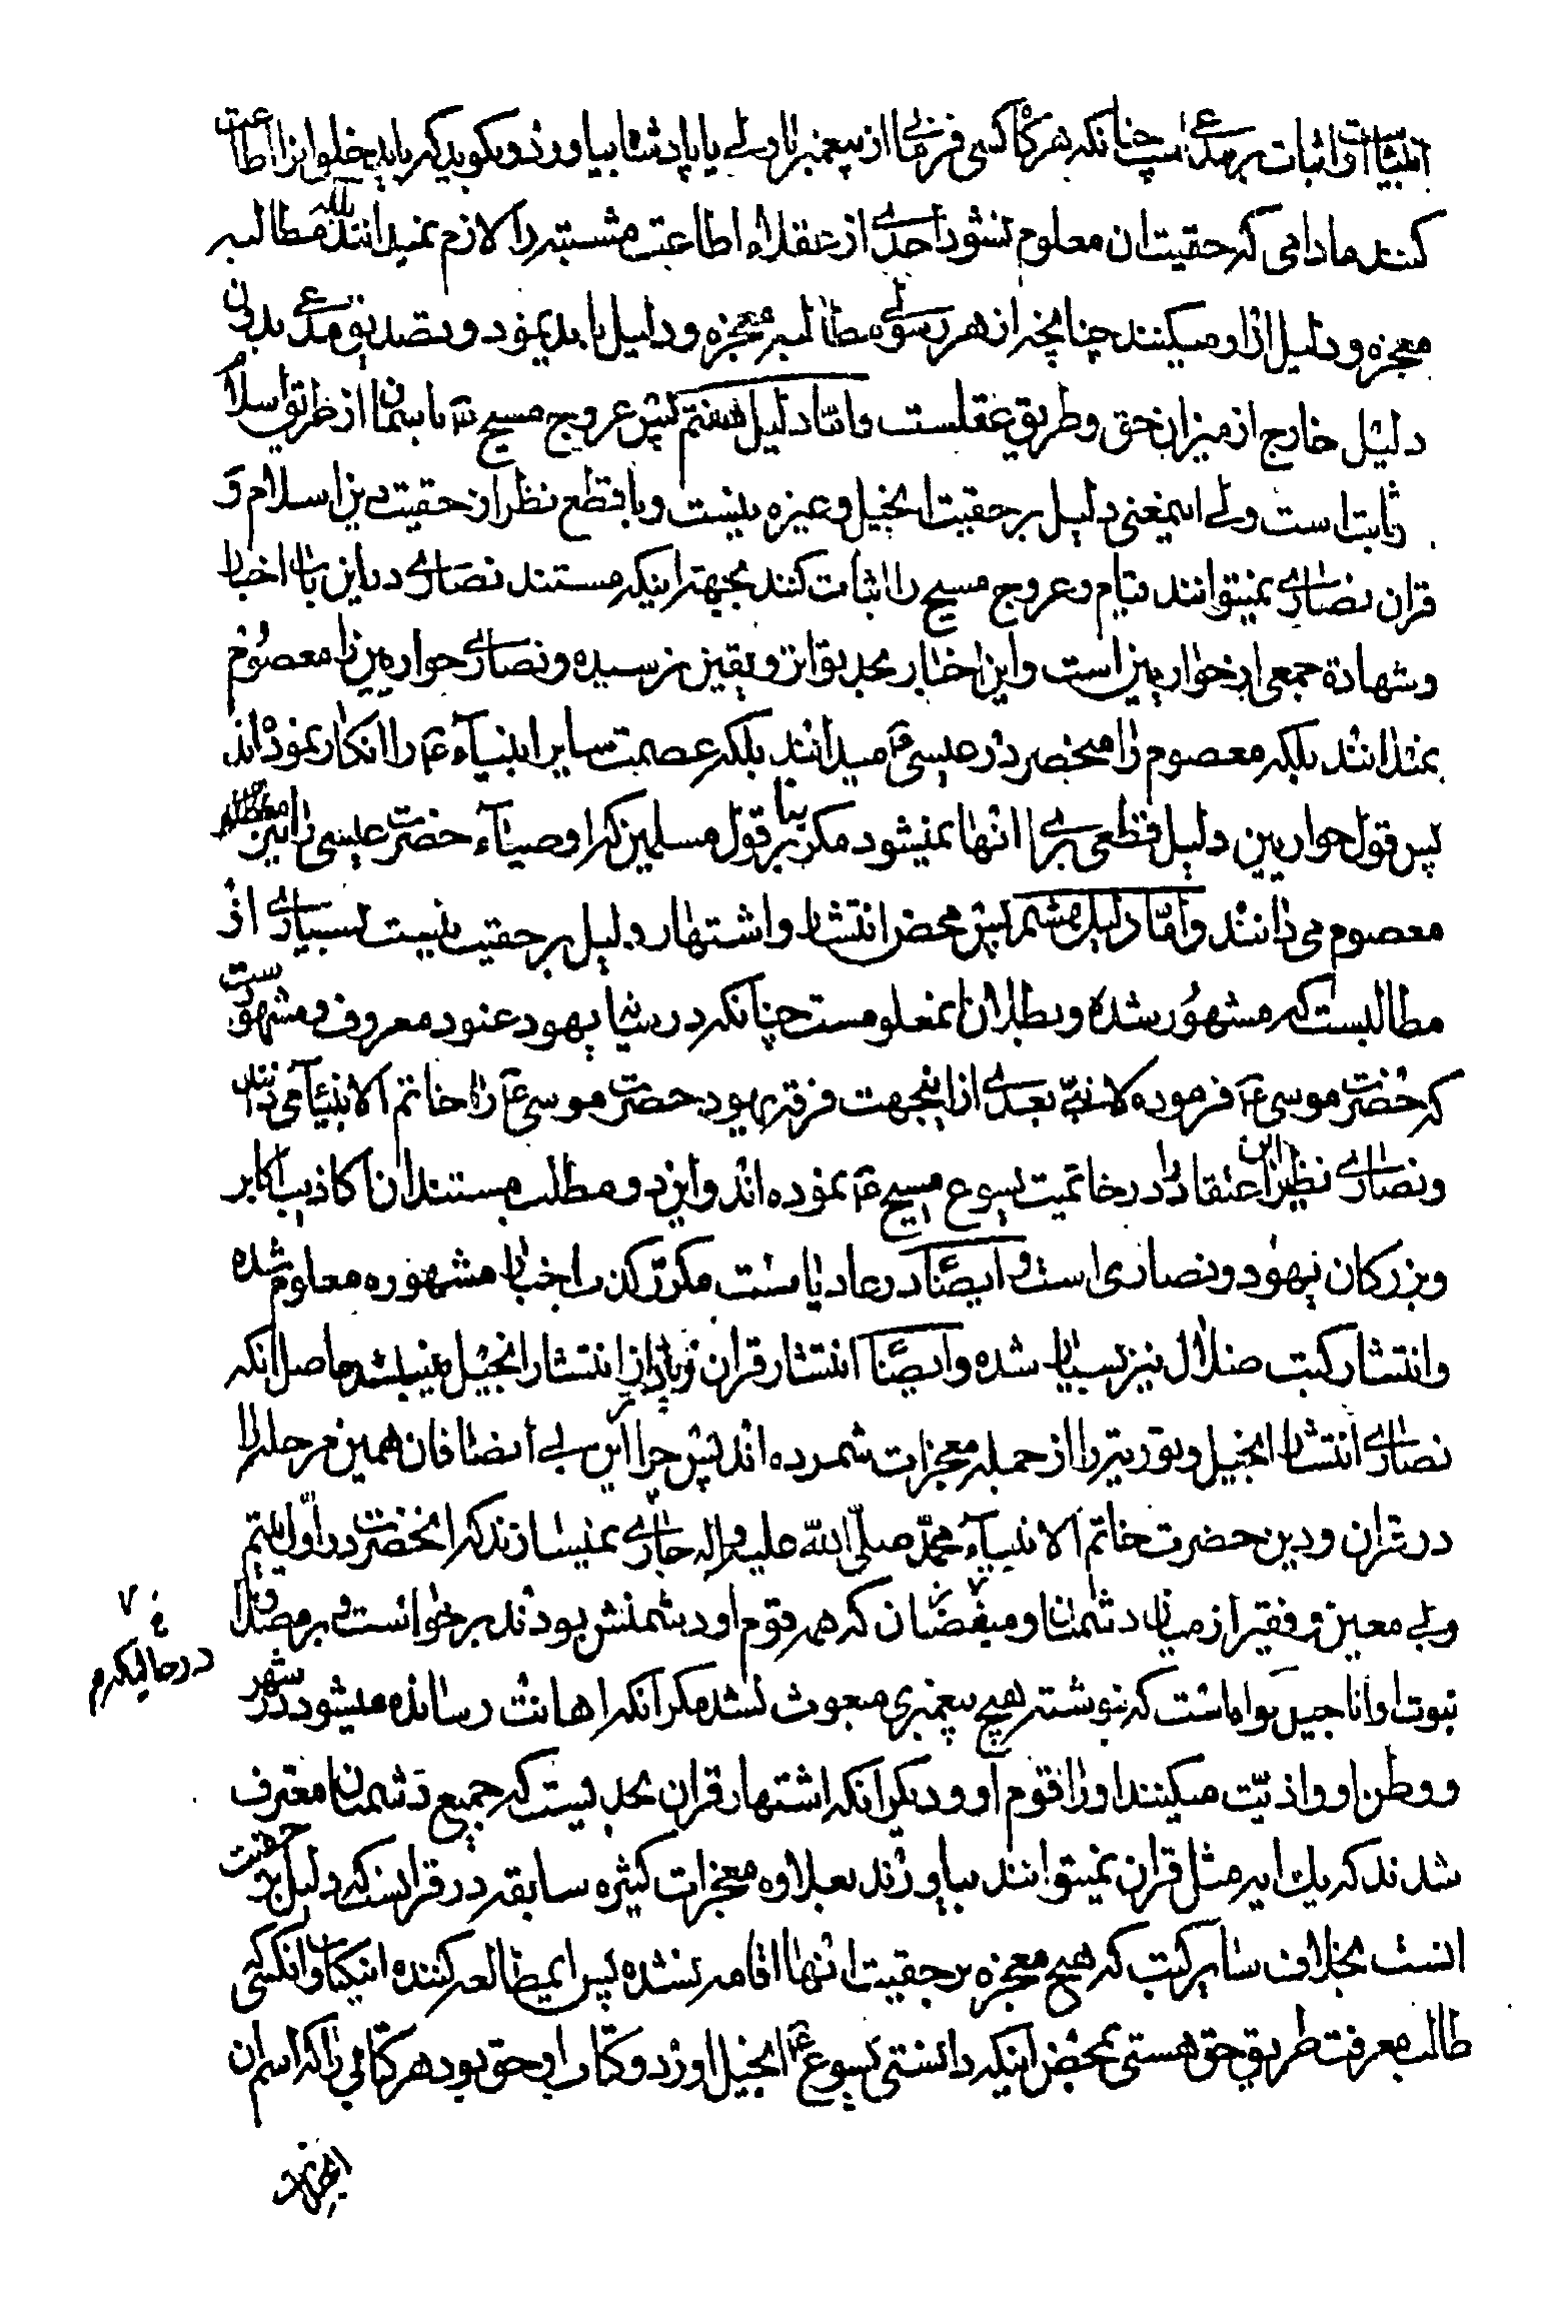 انبیاست و اثبات بر مدعی است چنانکه هرگاه کسی فرمانی از پیغمبر یا ولی یا پادشاه بیاورد و بگوید که باید خلق این را اطاعت
کنند مادامی که حقیت ان معلوم نشود احدی از عقلاء اطاعت مشتبه را لازم نمیدانند بلکه مطالبه
معجزه و دلیل از او میکنند چنانچه از هر رسولی مطالبه معجزه و دلیل باید نمود و تصدیق مدعی بدون
دلیل خارج از میزان حق و طریق عقلست و امّا دلیل هفتم پس عروج مسیح ع باسمان از طریق اسلام
ثابت است ولی اینمعنی دلیل بر حقیت انجیل و غیره نیست و با قطع نظر از حقیت دین اسلام و
قران نصاری نمیتوانند قیام و عروج مسیح را اثبات کنند بجهة اینکه مستند نصاری در این باب اخبار
و شهادة جمعی از حواریین است و این اخبار بحد تواتر و یقین نرسیده و نصاری حواریین را معصوم
نمیدانند بلکه معصوم را منحصر در عیسی ع میدانند بلکه عصمت سایر انبیآء ع را انکار نموده‌اند
پس قول حواریین دلیل قطعی برای انها نمیشود مکر بنا بر قول مسلمین که اوصیآء حضرت عیسی را نیز
معصوم می دانند و امّا دلیل هشتم پس محض انتشار و اشتهار دلیل بر حقیت نیست بسیاری از
مطالبست که مشهور شده و بطلان ان معلومست چنانکه در میان یهود عنود معروف و مشهور است
که حضرت موسی ع فرموده لا نبیّ بعدی از اینجهت فرقه یهود حضرت موسی ع را خاتم الانبیآء می دانند
و نصاری نظیر این اعتقاد را در خاتمیت یسوع مسیح ع نموده اند و این دو مطلب مستند ان اکاذیب اکابر
و بزرکان یهود و نصاری است و ایضًا در عادیات مکرر کذب اخبار مشهوره معلوم شده
و انتشار کتب ضلال نیز بسیار شده و ایضًا انتشار قران زیاده از انتشار انجیل میباشد حاصل انکه
نصاری انتشار انجیل و توریة را از جمله معجزات شمرده اند پس چرا این بی انصافان همین مرحله را
در قران و دین حضرت خاتم الانبیآء محمّد صلّی اللّه علیه و اله جاری نمیسازند که انحضرت در اول یتیم
و بی معین و فقیر از میان دشمنان و مبغضان که همه قوم او دشمنش بودند برخواست و بر مصداق
نبوت او اناجیل کواه است که نوشته هیچ پیغمبری مبعوث نشده مکر انکه اهانت رسانده میشود در شهر
و وطن او و اذیّت میکنند او را قوم او و دیکر انکه اشتهار قران بحدیست که جمیع دشمنان معترف
شدند که یك ایه مثل قران نمیتوانند بیاورند بعلاوه معجزات کثیره سابقه در قرانست که دلیل بر حقیت
انست بخلاف سایر کتب که هیچ معجزه بر حقیت انها اقامه نشده پس ایمطالعه کننده اینکتاب و انکسی که
طالب معرفت طریق حق هستی بمحض اینکه دانستی یسوع ع انجیل اورد و کتاب او حق بود هر کتابی را که اسم ان
درحالیکه